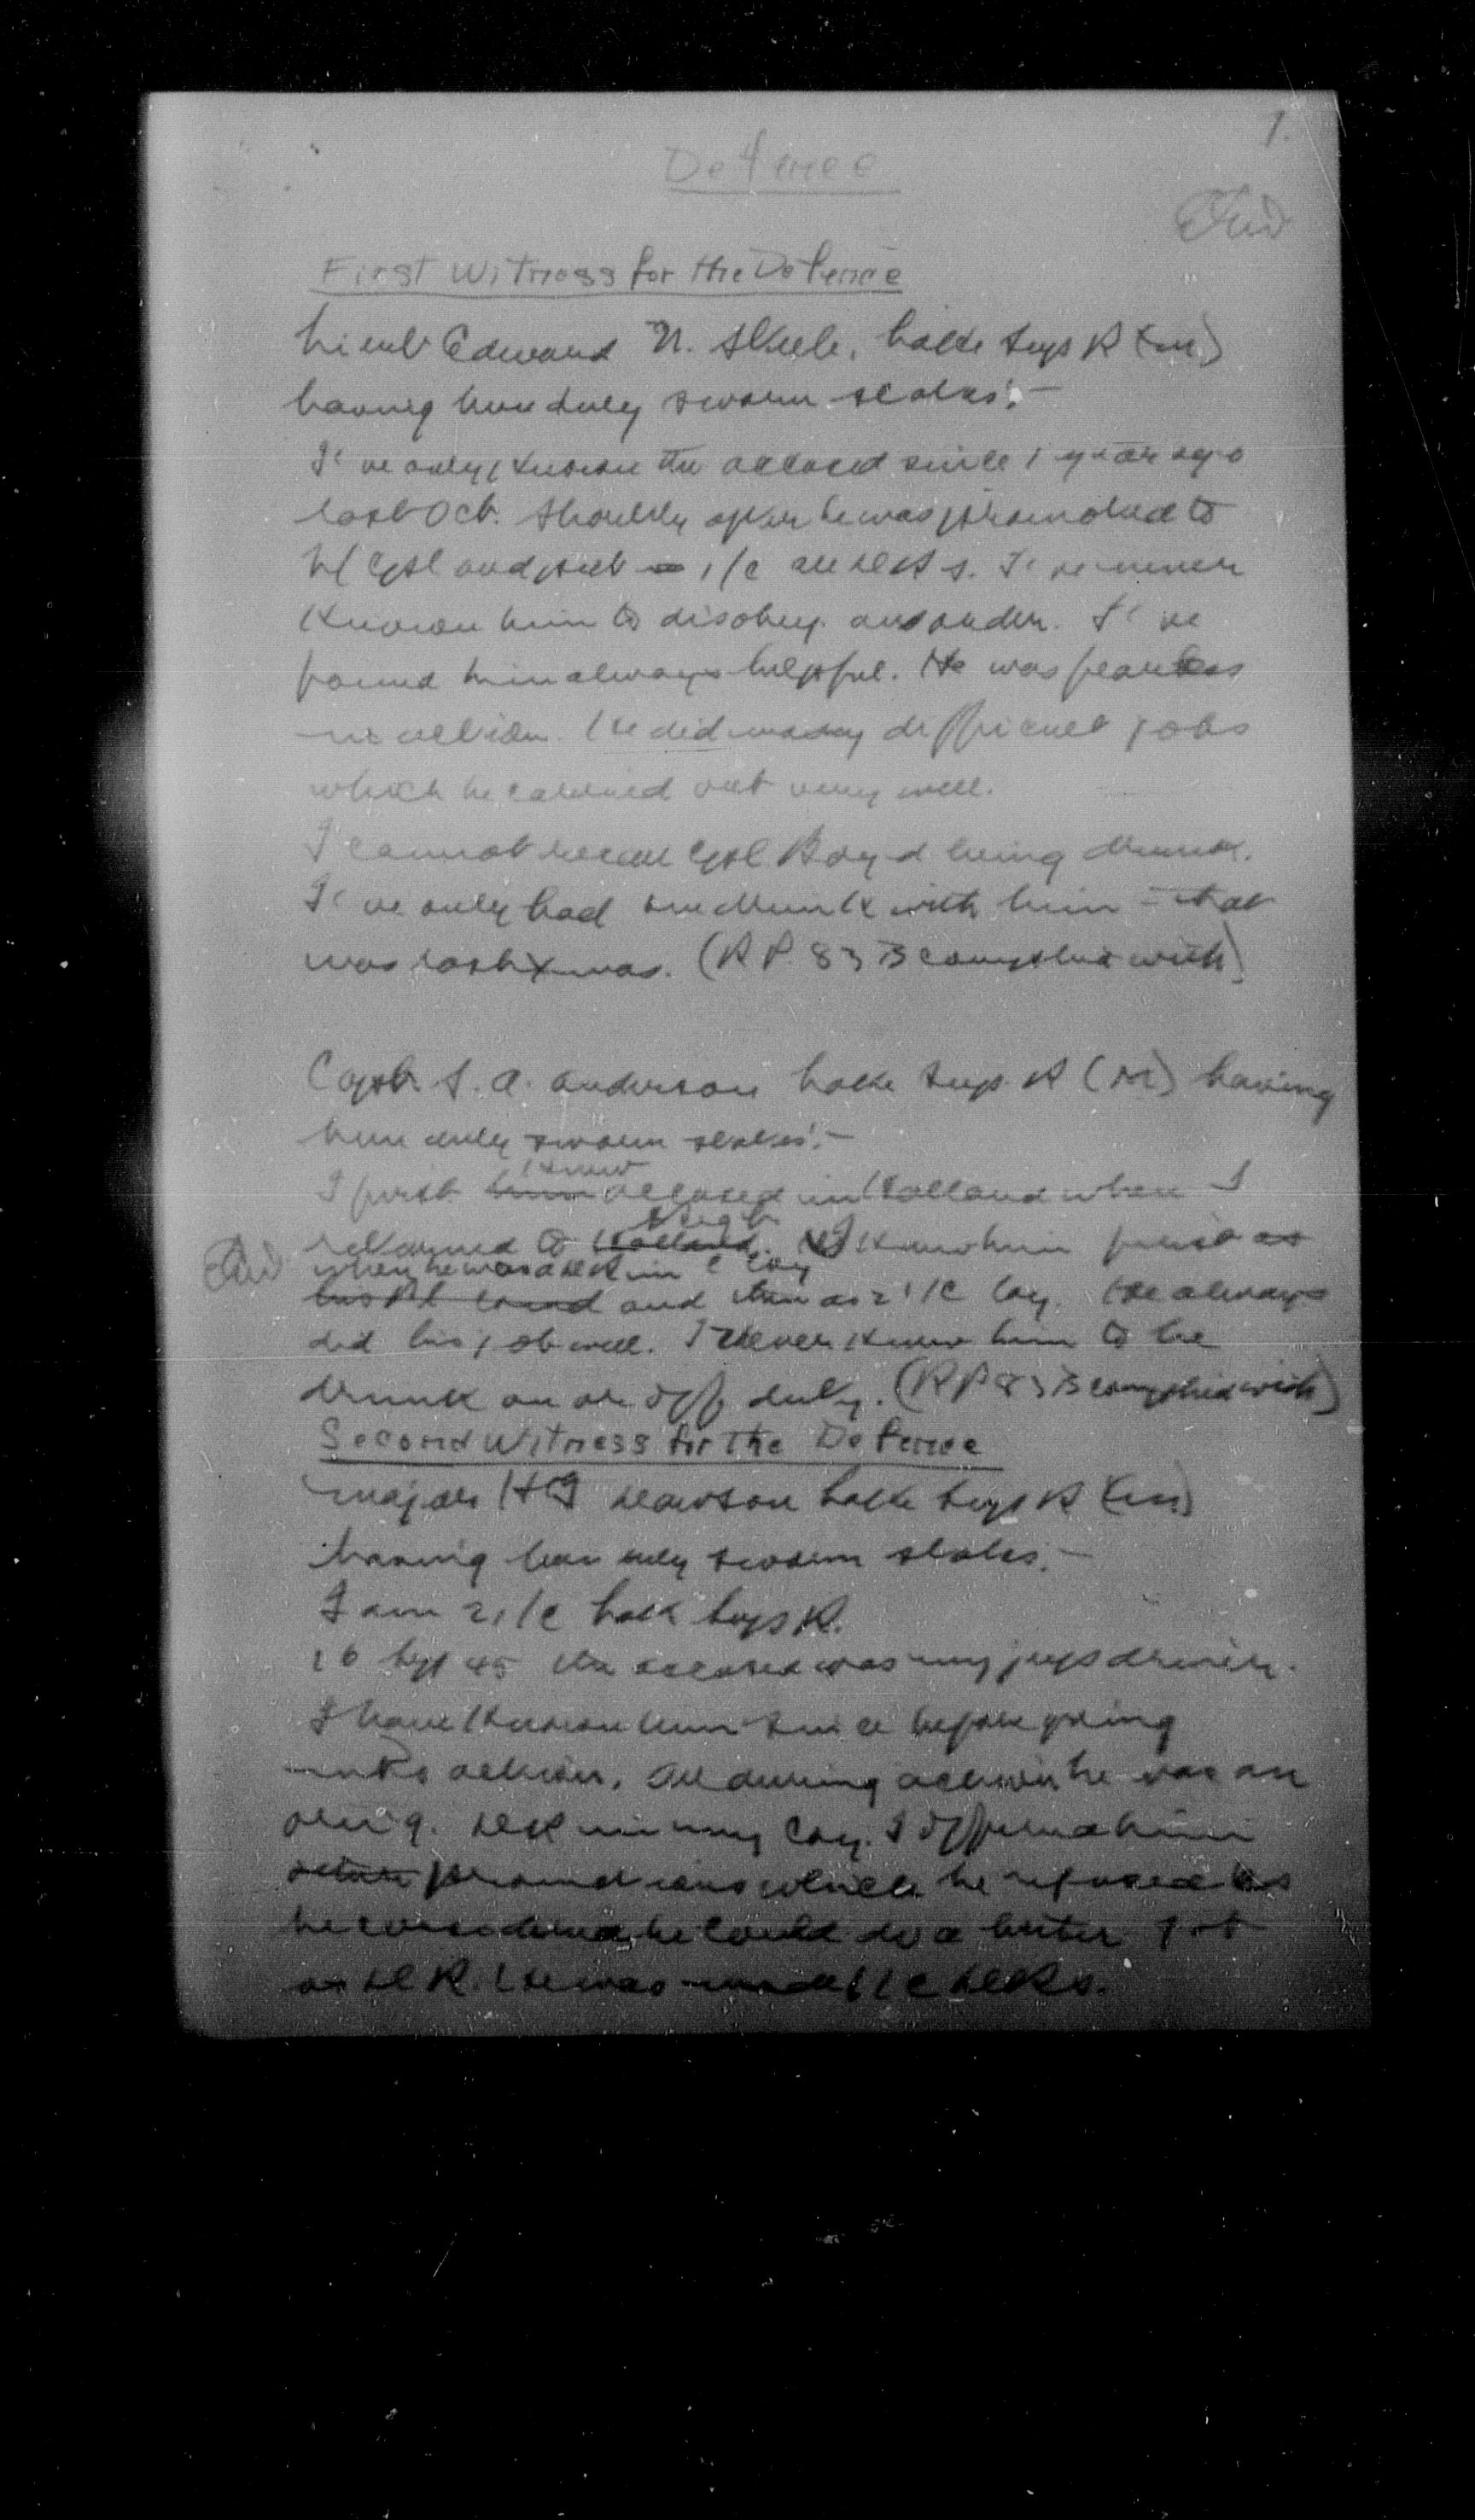 1.
Defence
First Witness for the Defence
Lieut Edward N. Steele, Lake Sup R (M)
having been duly sworn states:-
I've only known the accused since 1 year ago
last Oct. Shortly after he was promoted to
L/Cpl and put i/c all s. I've never
known him to disobey an order. I've
found him always helpful. He was fearless
in action. He did many difficult jobs
which he carried out very well.
I cannot recall Cpl. Boyd being drunk.
I've only had one drink with him - that
was last Xmas. (RP 83 B complied with)
Capt. S. A. Anderson Lake Sup. R (M) having
been duly sworn states:-
I first knew accused in Holland when I
returned to Regt. I knew him first as
when he was a in C Coy
and then as 2 i/c Coy. He always
did his job well. I never knew him to be
drunk on or off duty. (RP 83 B complied with)
Second Witness for the Defence
Major Dawson Lake Sup R (M)
having been duly sworn states:-
I am 2 i/c Lake Sup R.
16 Sep 45 the accused was my jeep driver.
I have known him since before going
into action. All during action he was an
orig. in my Coy. I offered him
promotions which he refused as
he considered he could do a better job
as . He was made i/c .